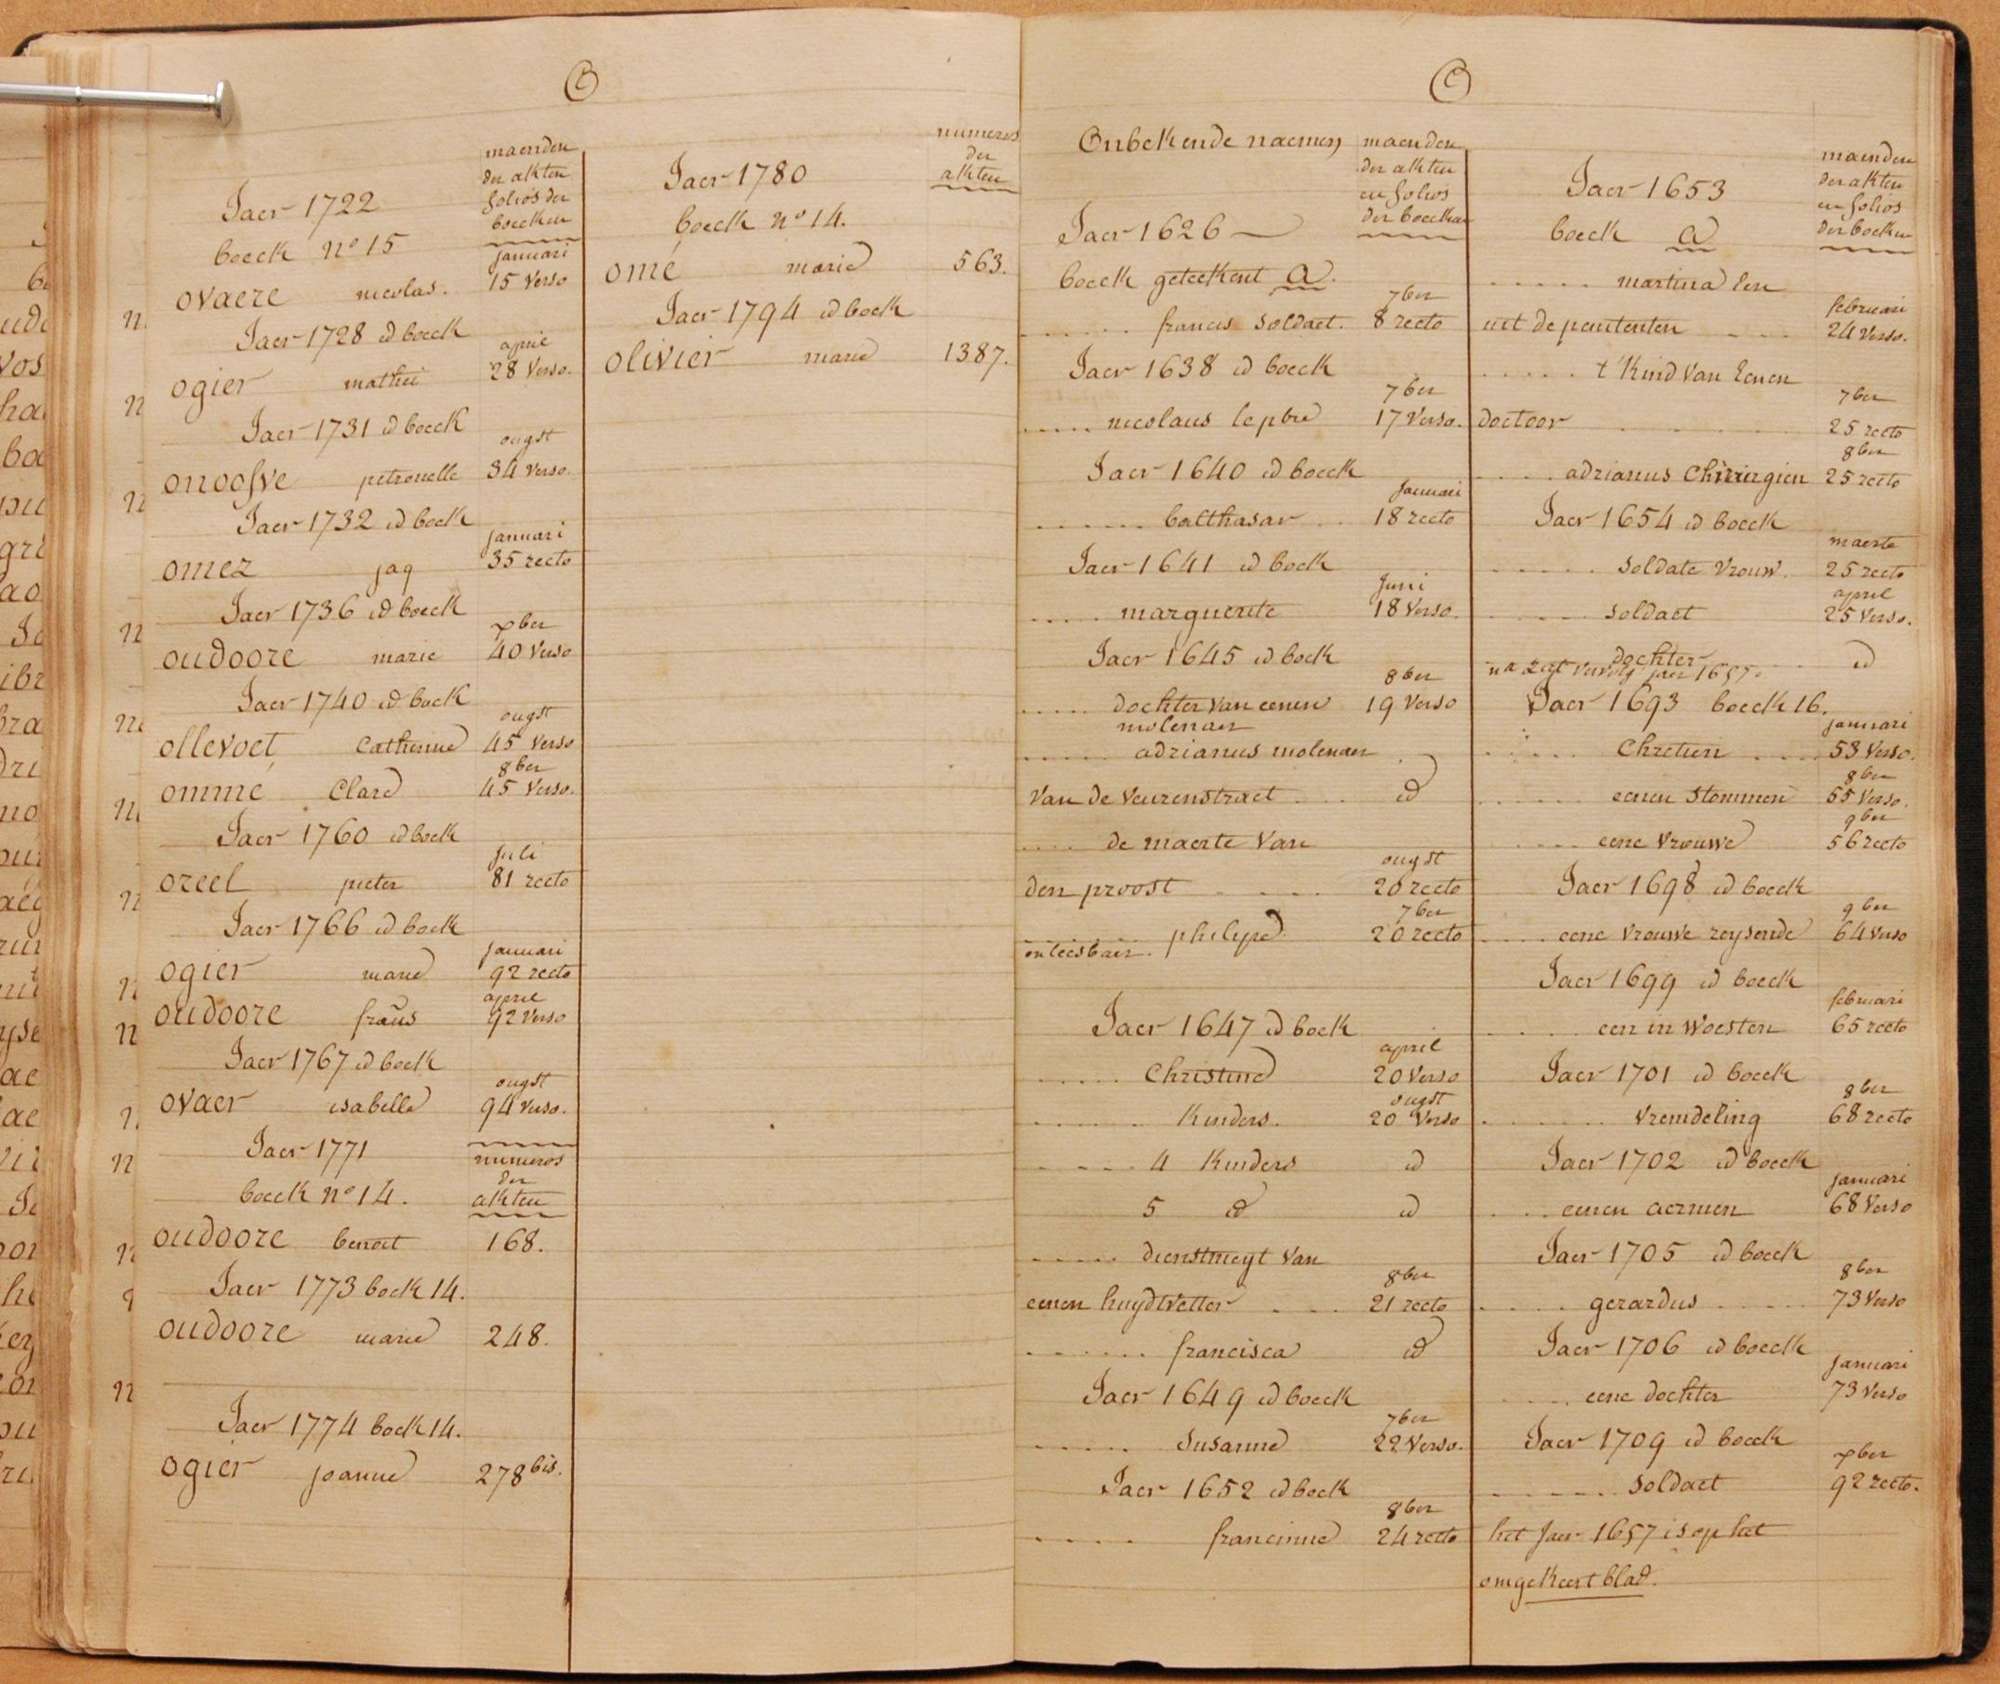 O
maenden
der akten
folios der
boecken
Jaer 1722
boeck no 15
januari
ovaere nicolas. 15 verso
Jaer 1728 id boeck
april
ogier mathei 28 verso.
Jaer 1731 id boeck
ougst
petronelle 34 verso.
Jaer 1732 id boeck
januari
omez jaq 35 recto
Jaer 1736 id boeck
xber
oudoore marie 40 verso
Jaer 1740 id boeck
ougst
ollevoet Catherine 45 verso
8ber
ommé Clare 45 verso.
Jaer 1760 id boeck
juli
oreel pieter 81 recto
Jaer 1766 id boeck
januari
ogier marie 92 recto
april
oudoore frans 92 verso
Jaer 1767 id boeck
ougst
ovaer isabelle 94 verso.
Jaer 1771
numeros
der
akten
boeck no 14.
oudoore benoit 168.
Jaer 1773 boek 14.
oudoore marie 248.
Jaer 1774 boek 14.
ogier joanne 278 bis.
numeros
der
akten
Jaer 1780
boeck no 14.
omé marie 563.
Jaer 1794 id boek
olivier marie 1387.
O
Onbekende naemen
maenden
der akten
en folios
der boecken
Jaer 1626
boeck geteekent a.
7ber
..... francis soldaet. 8 recto
Jaer 1638 id boeck
7ber
..... nicolaus lepbre 17 verso.
Jaer 1640 id boeck
Januari
...... balthasar .. 18 recto
Jaer 1641 id boek
Juni
..... marguerite 18 verso.
Jaer 1645 id boek
8ber
..... dochter van eenen 19 verso
molenaer
..... adrianus molenaer .
van de veurenstraet .... id
.... de maerte van
ougst
den proost ..... 20 recto
7ber
...... philype 20 recto
onleesbaer.
Jaer 1647 id boek
april
...... Christine 20 verso
ougst
....... Kinders. 20 verso
..... 4 Kinders id
5 id id
..... dienstmeyt van
8ber
eenen huydevetter .... 21 recto
....... francisca id
Jaer 1649 id boeck
7ber
...... Susanne 22 verso.
Jaer 1652 id boek
8ber
..... francinne 24 recto
maenden
der akten
en folios
der boeken
Jaer 1653
boeck a
...... martina een
februari
uit de penitenten .... 24 verso.
..... t'Kind van eenen
7ber
doctoor ....... 25 recto
8ber
..... adrianus Chirurgien 25 recto
Jaer 1654 id boeck
maerte
...... soldate vrouw. 25 recto
april
..... soldaet 25 verso.
dochter .... id
na dat vervolg jaer 1657.
Jaer 1693 boeck 16.
januari
...... Chretien .... 53 verso.
8ber
...... eenen stommen 55 verso.
9ber
..... eene vrouwe 56 recto
Jaer 1698 id boeck
9ber
.... eene vrouwe reysende 64 verso
Jaer 1699 id boeck
februari
..... een in woesten 65 recto
Jaer 1701 id boeck
8ber
....... vremdeling 68 recto
Jaer 1702 id boeck
januari
.... eenen aermen 68 verso
Jaer 1705 id boeck
8ber
..... gerardus ..... 73 verso
Jaer 1706 id boeck
januari
.... eene dochter 73 verso
Jaer 1709 id boeck
xber
....... soldaet 92 recto.
het Jaer 1657 is op het
omgekeert blad.